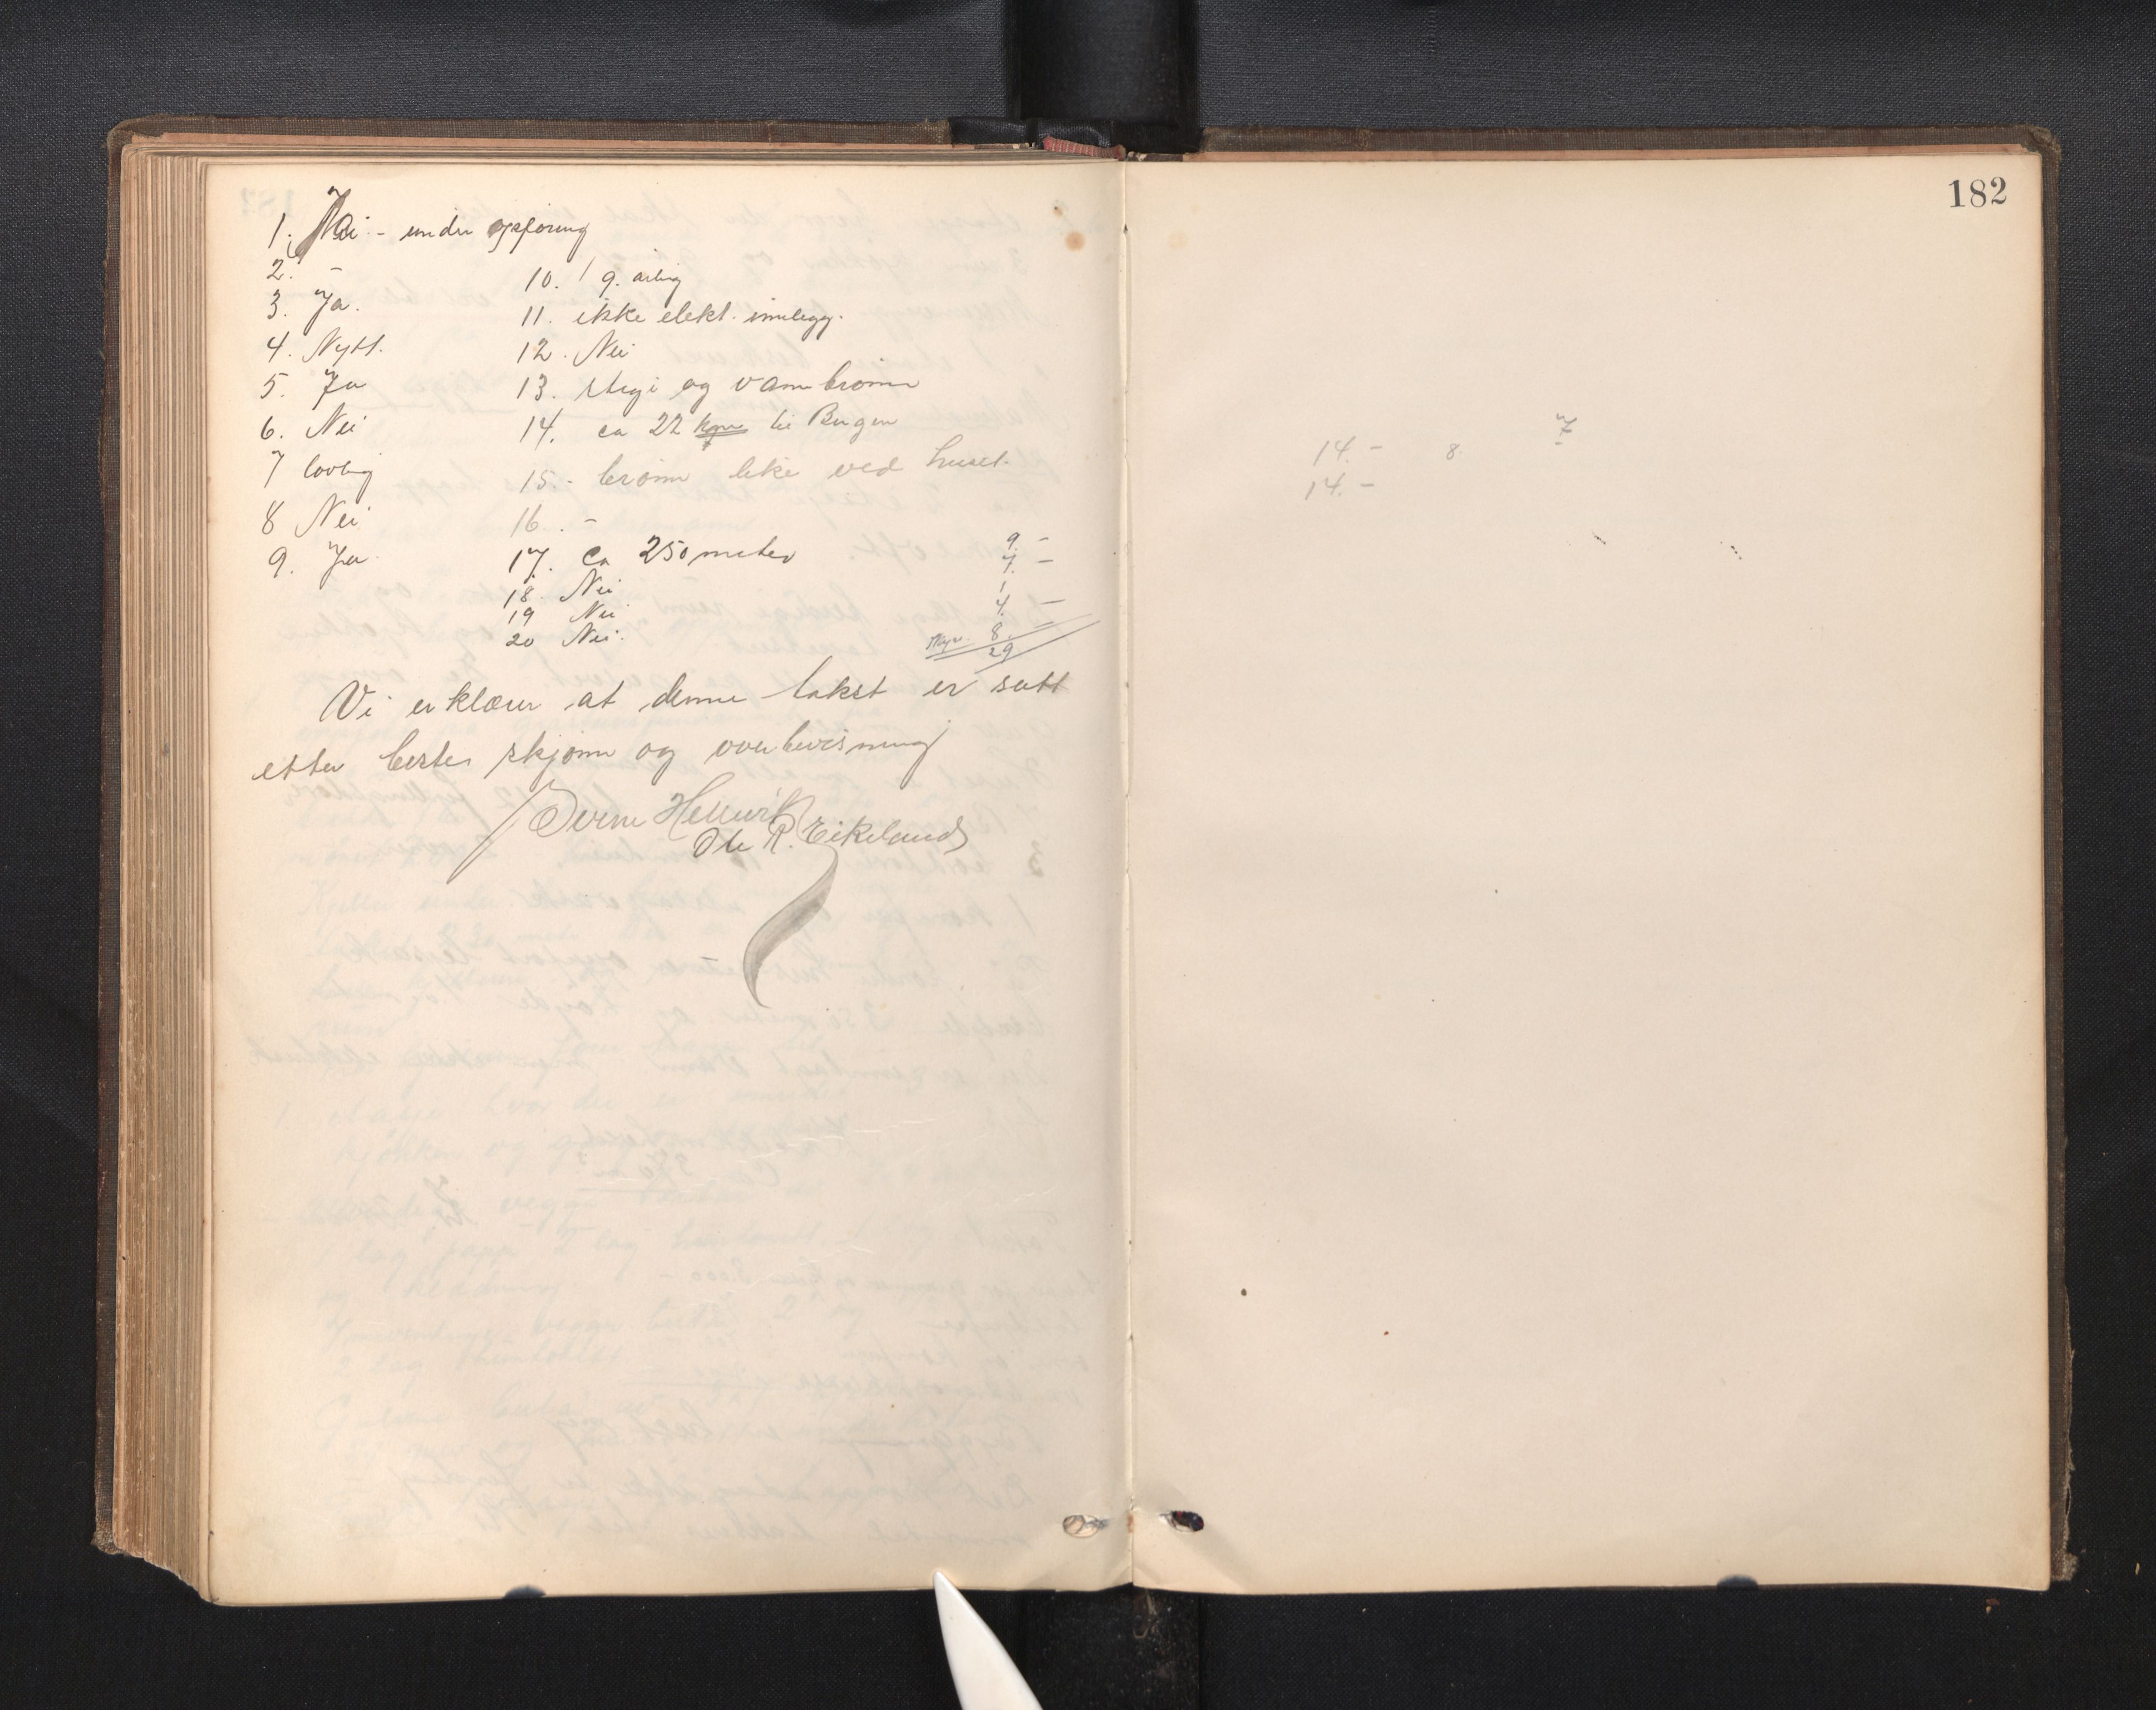 1. Nei - under opføring
2. -
3. Ja.
4. Nytt.
5. Ja
6. Nei
7 lovlig
8 Nei
9. Ja
10. 9. årlig
11. ikke elekt. innlegg.
12. Nei
13. stegi og vannbrønn
14. ca 22 km til Bergen
15. brønn like ved huset.
16. -
17. ca 250 meter
18. Nei
19 Nei
20 Nei.
9. -
7. -
4. -
8. -
29
Vi erklærer at denne takst er satt
etter beste skjønn og overbevisning
Ole R. Eikeland
182
7
14. - 8.
14. -